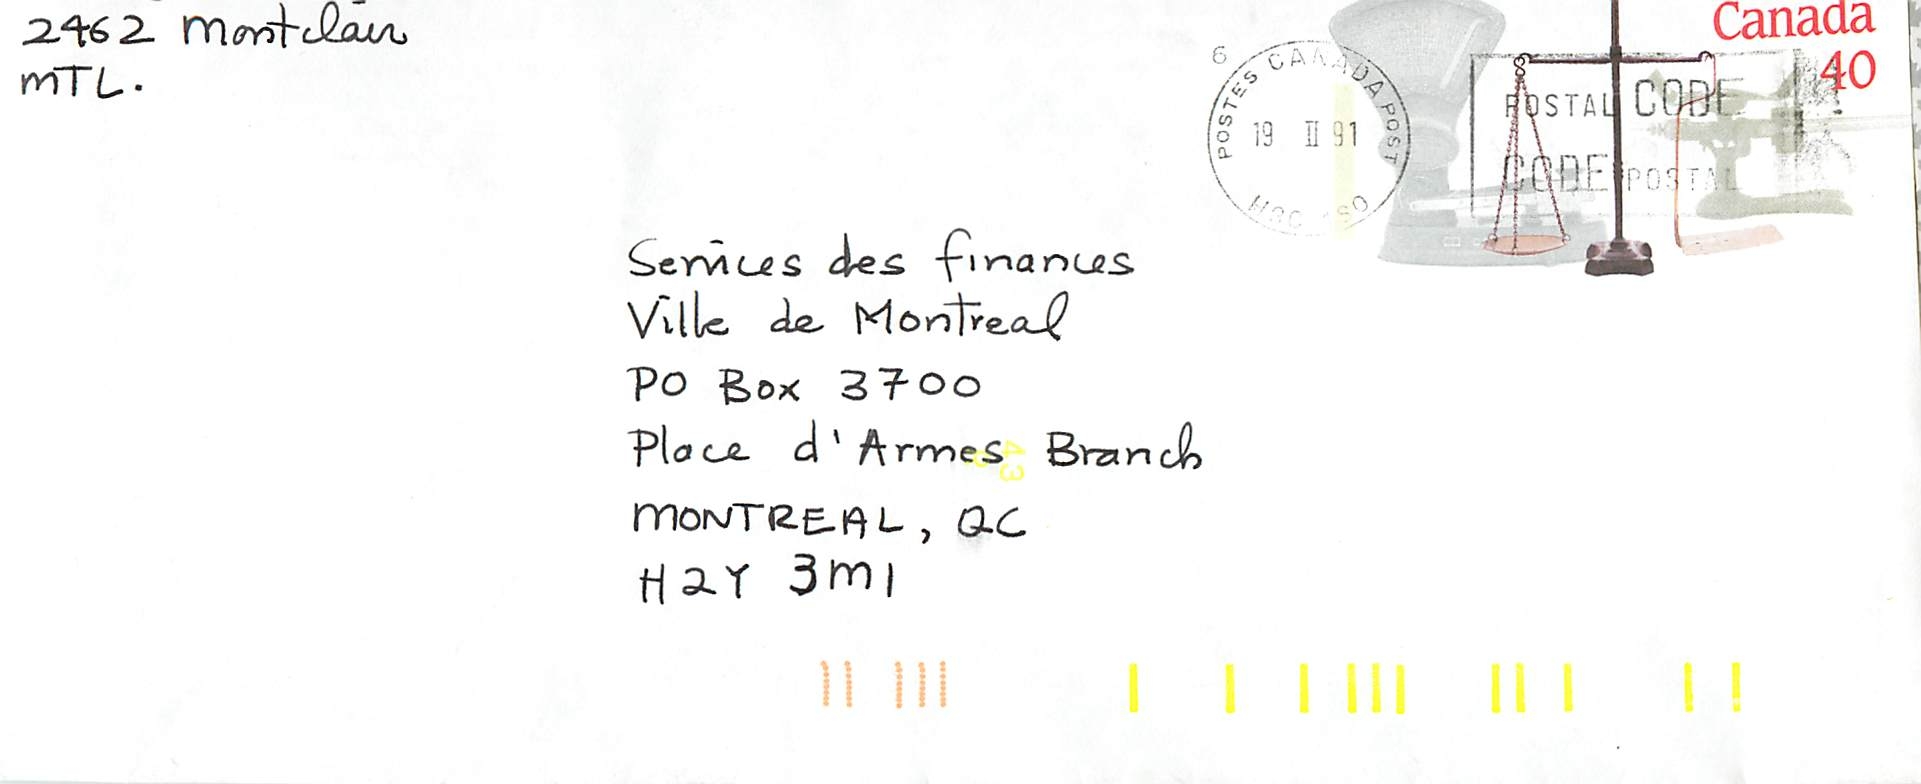 2462 Montclair
MTL.
Canada
40
6
POSTES CANADA POST
19 II 91
POSTAL CODE
CODE POSTAL
Services des finances
Ville de Montreal
PO Box 3700
Place d'Armes Branch
MONTREAL, QC
H2Y 3M1
43